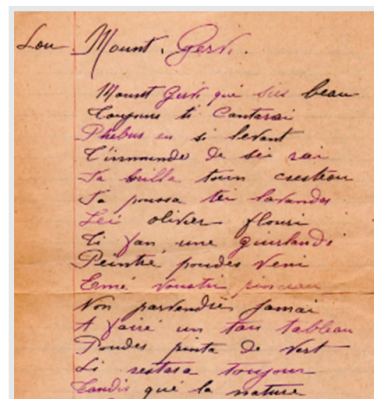 Lou Mount. Gerbi.
Mount Gerbi qué sies beau
Toujours ti Cantarai
Phébus en si levant
T'innounde de sei rai
Fa brilla toun cresteou
Fa poussa tei lavandes
Lei olivier flouri
Ti fan une guirlande
Peintre poudes veni
Emé vouestri pinceau
Non parvendrés jamai
A faire un tau tableau
Poudes pinta de vert
Li restara toujour
Tandis qué la nature